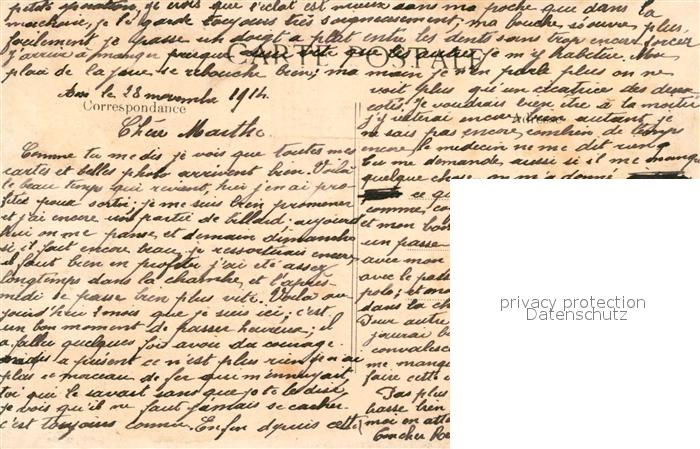 petite opération, je crois que l'éclat est mieux dans ma poche que dans la
machoire, je le garde toujours très soigneusement, ma bouche s'ouvre plus
facilement je passe un doigt a plat entre les dents sans trop encore forcer
j'arrive a manger presque que je m'y habitue. Mon
CARTE POSTALE
plaie de la joue se rebouche bien; ma main je n'en parle plus on ne
voit plus qu'un cicatrice des deux
cotés, Je voudrais bien être à la moitié
j'y resterai encore bien autant, je
ne sais pas encore combien de temps
encore le medecin ne me dit rien
tu me demande, aussi si il me manque
quelque chose on m'a donné
ce qu
comme
et mon
un passe
avec mon
avec le passe
polo; et
dans la ch
Pour autre
j'aurai
convalesc
me manqu
faire cette
Pas plus
basse bien
moi en atte
Ton cher
le 28 novembre 1914
Correspondance
Chère Marthe
Comme tu me dis je vois que toutes mes
cartes et belles photo arrivent bien. Voilà
le beau temps qui revient, hier j'en ai pro-
fitée pour sortir; je me suis bien promener
et j'ai encore une partie de billard. aujourd
hui on me panse et demain dimanche
si il fait encore beau je ressortirais encore,
il faut bien en profiter j'ai été assez
longtemps dans la chambre, et l'après-
midi se passe bien plus vite. Voilà au
jourd'hui 2 mois que je suis ici; c'est
un bon moment de passer heureux; il
a fallu quelques fois avoir du courage.
mais a présent ce n'est plus rien je n'ai
plus ce morceau de fer qui m'ennuyait
toi qui le savait sans que je te le dise
je vois qu'il ne faut jamais se cacher
c'est toujours connu. Enfin depuis cette
privacy protection
Datenschutz